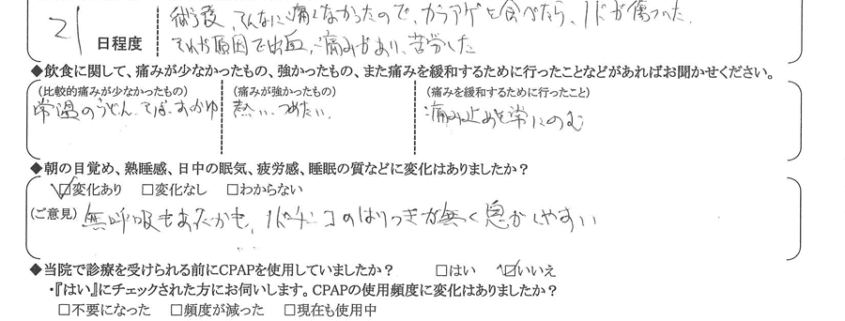 術後、そんなに痛くなかったので、カラアゲを食べたら、ノドが傷ついた。
21 日程度 それが原因で出血、痛みがあり、苦労した
◆飲食に関して、痛みが少なかったもの、強かったもの、また痛みを緩和するために行ったことなどがあればお聞かせください。
(比較的痛みが少なかったもの) (痛みが強かったもの) (痛みを緩和するために行ったこと)
常温のうどん、そば、おかゆ 熱い、つめたい、 痛み止めを常にのむ
◆朝の目覚め、熟睡感、日中の眠気、疲労感、睡眠の質などに変化はありましたか?
☑変化あり □変化なし □わからない
(ご意見) 無呼吸も ノドチンコのはりつきが無く息がしやすい
◆当院で診療を受けられる前にCPAPを使用していましたか? □はい ☑いいえ
・『はい』にチェックされた方にお伺いします。CPAPの使用頻度に変化はありましたか?
□不要になった □頻度が減った □現在も使用中